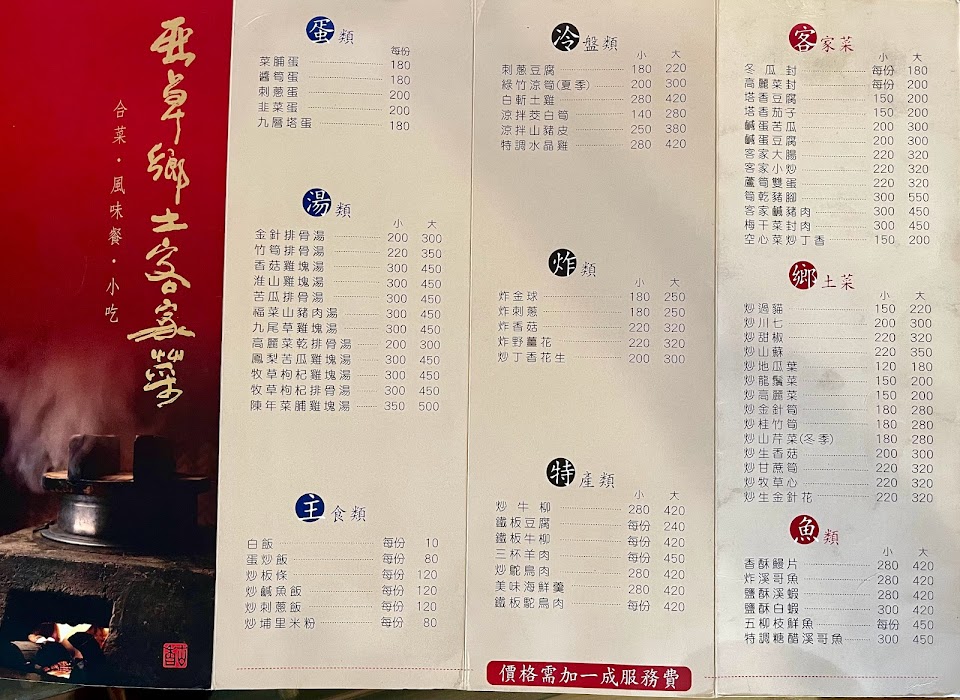 卓鄉土客家菜
合菜・風味餐・小吃
蛋類
每份
菜脯蛋 180
醬筍蛋 180
刺蔥蛋 200
韭菜蛋 200
九層塔蛋 180
湯類
小 大
金針排骨湯 200 300
竹筍排骨湯 220 350
香菇雞塊湯 300 450
淮山雞塊湯 300 450
苦瓜排骨湯 300 450
福菜山豬肉湯 300 450
九尾草雞塊湯 300 450
高麗菜乾排骨湯 200 300
鳳梨苦瓜雞塊湯 300 450
牧草枸杞雞塊湯 300 450
牧草枸杞排骨湯 300 450
陳年菜脯雞塊湯 350 500
主食類
白飯 每份 10
蛋炒飯 每份 80
炒板條 每份 120
炒鹹魚飯 每份 120
炒刺蔥飯 每份 120
炒埔里米粉 每份 80
冷盤類
小 大
刺蔥豆腐 180 220
綠竹涼筍(夏季) 200 300
白斬土雞 280 420
涼拌茭白筍 140 280
涼拌山豬皮 250 380
特調水晶雞 280 420
炸類
小 大
炸金球 180 250
炸刺蔥 180 250
炸香菇 220 320
炸野薑花 220 320
炒丁香花生 200 300
特產類
小 大
炒牛柳 280 420
鐵板豆腐 每份 240
鐵板牛柳 每份 420
三杯羊肉 每份 450
炒鴕鳥肉 280 420
美味海鮮羹 280 420
鐵板鴕鳥肉 每份 420
價格需加一成服務費
客家菜
小 大
冬瓜封 每份 180
高麗菜封 每份 200
塔香豆腐 150 200
塔香茄子 150 200
鹹蛋苦瓜 200 300
鹹蛋豆腐 200 300
客家大腸 220 320
客家小炒 220 320
蘆筍雙蛋 220 320
筍乾豬腳 300 550
客家鹹豬肉 300 450
梅干菜封肉 300 450
空心菜炒丁香 150 200
鄉土菜
小 大
炒過貓 150 220
炒川七 200 300
炒甜椒 220 320
炒山蘇 220 350
炒地瓜葉 120 180
炒龍鬚菜 150 200
炒高麗菜 150 200
炒金針筍 180 280
炒桂竹筍 180 280
炒山芹菜(冬季) 180 280
炒生香菇 200 300
炒甘蔗筍 220 320
炒牧草心 220 320
炒生金針花 220 320
魚類
小 大
香酥鰻片 280 420
炸溪哥魚 280 420
鹽酥溪蝦 280 420
鹽酥白蝦 300 420
五柳枝鮮魚 每份 450
特調糖醋溪哥魚 300 450